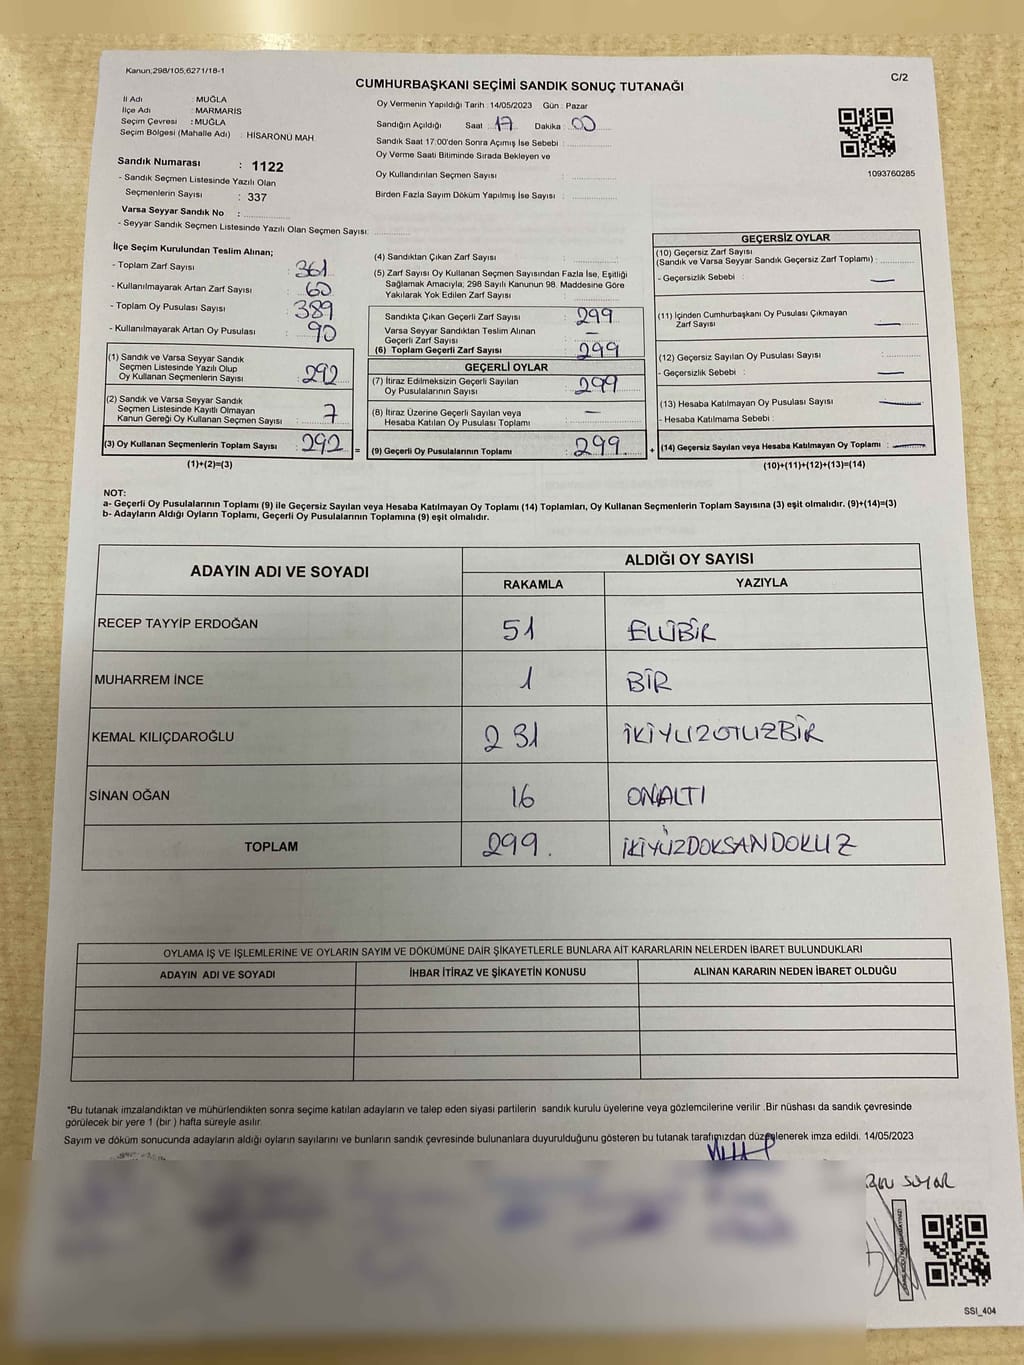 Kanun;298/105,6271/18-1
C/2
CUMHURBAŞKANI SEÇİMİ SANDIK SONUÇ TUTANAĞI
İl Adı : MUĞLA
İlçe Adı : MARMARİS
Seçim Çevresi : MUĞLA
Seçim Bölgesi (Mahalle Adı) : HİSARÖNÜ MAH
Sandık Numarası : 1122
- Sandık Seçmen Listesinde Yazılı Olan
Seçmenlerin Sayısı : 337
Varsa Seyyar Sandık No :
- Seyyar Sandık Seçmen Listesinde Yazılı Olan Seçmen Sayısı:
Oy Vermenin Yapıldığı Tarih : 14/05/2023 Gün : Pazar
Sandığın Açıldığı Saat : 17 Dakika : 00
Sandık Saat 17:00'den Sonra Açımış İse Sebebi :
Oy Verme Saati Bitiminde Sırada Bekleyen ve
Oy Kullandırılan Seçmen Sayısı :
Birden Fazla Sayım Döküm Yapılmış İse Sayısı :
1093760285
İlçe Seçim Kurulundan Teslim Alınan;
- Toplam Zarf Sayısı : 361
- Kullanılmayarak Artan Zarf Sayısı : 60
- Toplam Oy Pusulası Sayısı : 389
- Kullanılmayarak Artan Oy Pusulası : 90
(1) Sandık ve Varsa Seyyar Sandık
Seçmen Listesinde Yazılı Olup
Oy Kullanan Seçmenlerin Sayısı : 292
(2) Sandık ve Varsa Seyyar Sandık
Seçmen Listesinde Kayıtlı Olmayan
Kanun Gereği Oy Kullanan Seçmen Sayısı : 7
(3) Oy Kullanan Seçmenlerin Toplam Sayısı : 292 =
(1)+(2)=(3)
(4) Sandıktan Çıkan Zarf Sayısı :
(5) Zarf Sayısı Oy Kullanan Seçmen Sayısından Fazla İse, Eşitliği
Sağlamak Amacıyla; 298 Sayılı Kanunun 98. Maddesine Göre
Yakılarak Yok Edilen Zarf Sayısı :
Sandıkta Çıkan Geçerli Zarf Sayısı : 299
Varsa Seyyar Sandıktan Teslim Alınan
Geçerli Zarf Sayısı : —
(6) Toplam Geçerli Zarf Sayısı : 299
GEÇERLİ OYLAR
(7) İtiraz Edilmeksizin Geçerli Sayılan
Oy Pusulalarının Sayısı : 299
(8) İtiraz Üzerine Geçerli Sayılan veya
Hesaba Katılan Oy Pusulası Toplamı : —
(9) Geçerli Oy Pusulalarının Toplamı : 299 +
GEÇERSİZ OYLAR
(10) Geçersiz Zarf Sayısı
(Sandık ve Varsa Seyyar Sandık Geçersiz Zarf Toplamı) :
- Geçersizlik Sebebi : —
(11) İçinden Cumhurbaşkanı Oy Pusulası Çıkmayan
Zarf Sayısı : —
(12) Geçersiz Sayılan Oy Pusulası Sayısı :
- Geçersizlik Sebebi : —
(13) Hesaba Katılmayan Oy Pusulası Sayısı : —
- Hesaba Katılmama Sebebi :
(14) Geçersiz Sayılan veya Hesaba Katılmayan Oy Toplamı : —
(10)+(11)+(12)+(13)=(14)
NOT:
a- Geçerli Oy Pusulalarının Toplamı (9) ile Geçersiz Sayılan veya Hesaba Katılmayan Oy Toplamı (14) Toplamları, Oy Kullanan Seçmenlerin Toplam Sayısına (3) eşit olmalıdır. (9)+(14)=(3)
b- Adayların Aldığı Oyların Toplamı, Geçerli Oy Pusulalarının Toplamına (9) eşit olmalıdır.
ADAYIN ADI VE SOYADI
ALDIĞI OY SAYISI
RAKAMLA YAZIYLA
RECEP TAYYİP ERDOĞAN 51 ELLİBİR
MUHARREM İNCE 1 BİR
KEMAL KILIÇDAROĞLU 231 İKİYUZOTUZBİR
SİNAN OĞAN 16 ONALTI
TOPLAM 299. İKİYÜZDOKSANDOKUZ
OYLAMA İŞ VE İŞLEMLERİNE VE OYLARIN SAYIM VE DÖKÜMÜNE DAİR ŞİKAYETLERLE BUNLARA AİT KARARLARIN NELERDEN İBARET BULUNDUKLARI
ADAYIN ADI VE SOYADI İHBAR İTİRAZ VE ŞİKAYETİN KONUSU ALINAN KARARIN NEDEN İBARET OLDUĞU
*Bu tutanak imzalandıktan ve mühürlendikten sonra seçime katılan adayların ve talep eden siyasi partilerin sandık kurulu üyelerine veya gözlemcilerine verilir .Bir nüshası da sandık çevresinde
görülecek bir yere 1 (bir ) hafta süreyle asılır.
Sayım ve döküm sonucunda adayların aldığı oyların sayılarını ve bunların sandık çevresinde bulunanlara duyurulduğunu gösteren bu tutanak tarafımızdan düzenlenerek imza edildi. 14/05/2023
SSI_404